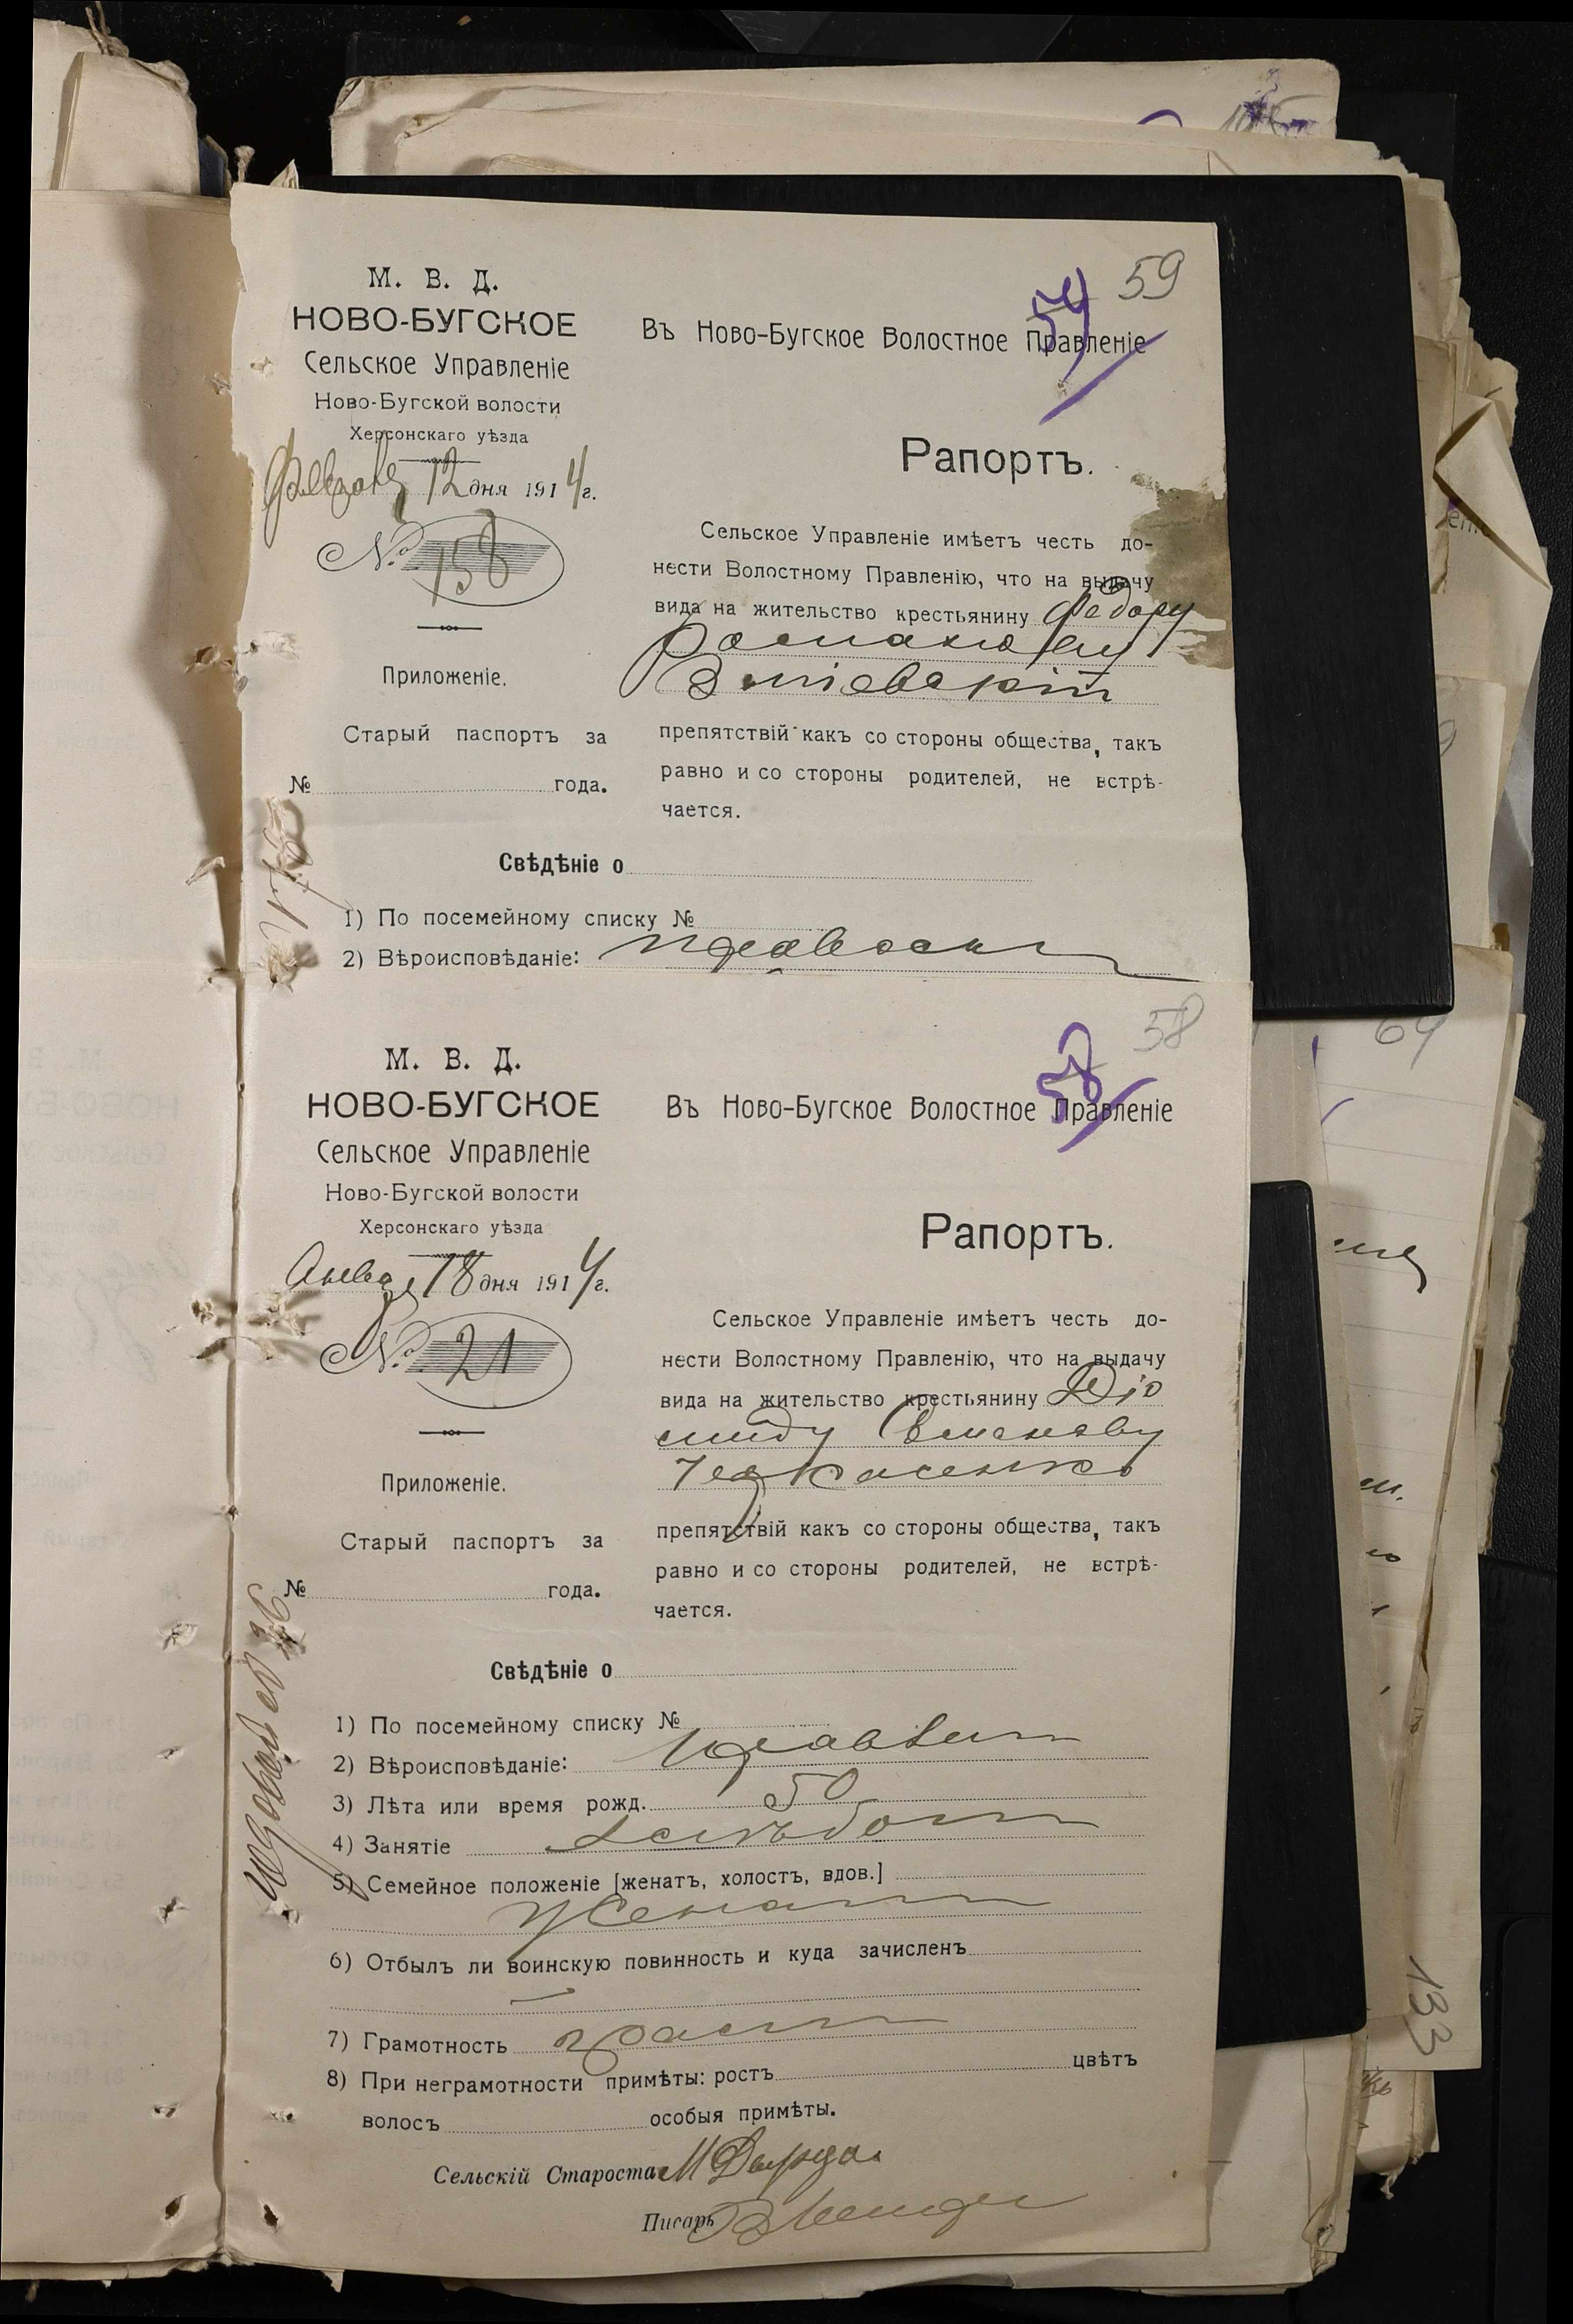 59
54
М. В. Д.
НОВО-БУГСКОЕ
Сельское Управленіе
Ново-Бугской волости
Херсонскаго уѣзда
12 дня 1914 г.
№ 158
Приложеніе.
Старый паспортъ за
№ года.
Въ Ново-Бугское Волостное Правленіе
Рапортъ.
Сельское Управленіе имѣетъ честь до-
нести Волостному Правленію, что на выдачу
вида на жительство крестьянину Федору
препятствій какъ со стороны общества, такъ
равно и со стороны родителей, не встрѣ-
чается.
Свѣдѣніе о
1) По посемейному списку №
2) Вѣроисповѣданіе: православн
58
58
М. В. Д.
НОВО-БУГСКОЕ
Сельское Управленіе
Ново-Бугской волости
Херсонскаго уѣзда
Январ 18 дня 1914 г.
№ 21
Приложеніе.
Старый паспортъ за
№ года.
Въ Ново-Бугское Волостное Правленіе
Рапортъ.
Сельское Управленіе имѣетъ честь до-
нести Волостному Правленію, что на выдачу
вида на жительство крестьянину Діо
миду Семенову
Черкасенко
препятствій какъ со стороны общества, такъ
равно и со стороны родителей, не встрѣ-
чается.
Свѣдѣніе о
1) По посемейному списку №
2) Вѣроисповѣданіе:
3) Лѣта или время рожд. 50
4) Занятіе
5) Семейное положеніе [женатъ, холостъ, вдов.]
Женатъ
6) Отбылъ ли воинскую повинность и куда зачисленъ
7) Грамотность грам
8) При неграмотности примѣты: ростъ цвѣтъ
волосъ особыя примѣты.
Сельскій Староста
Писарь
133